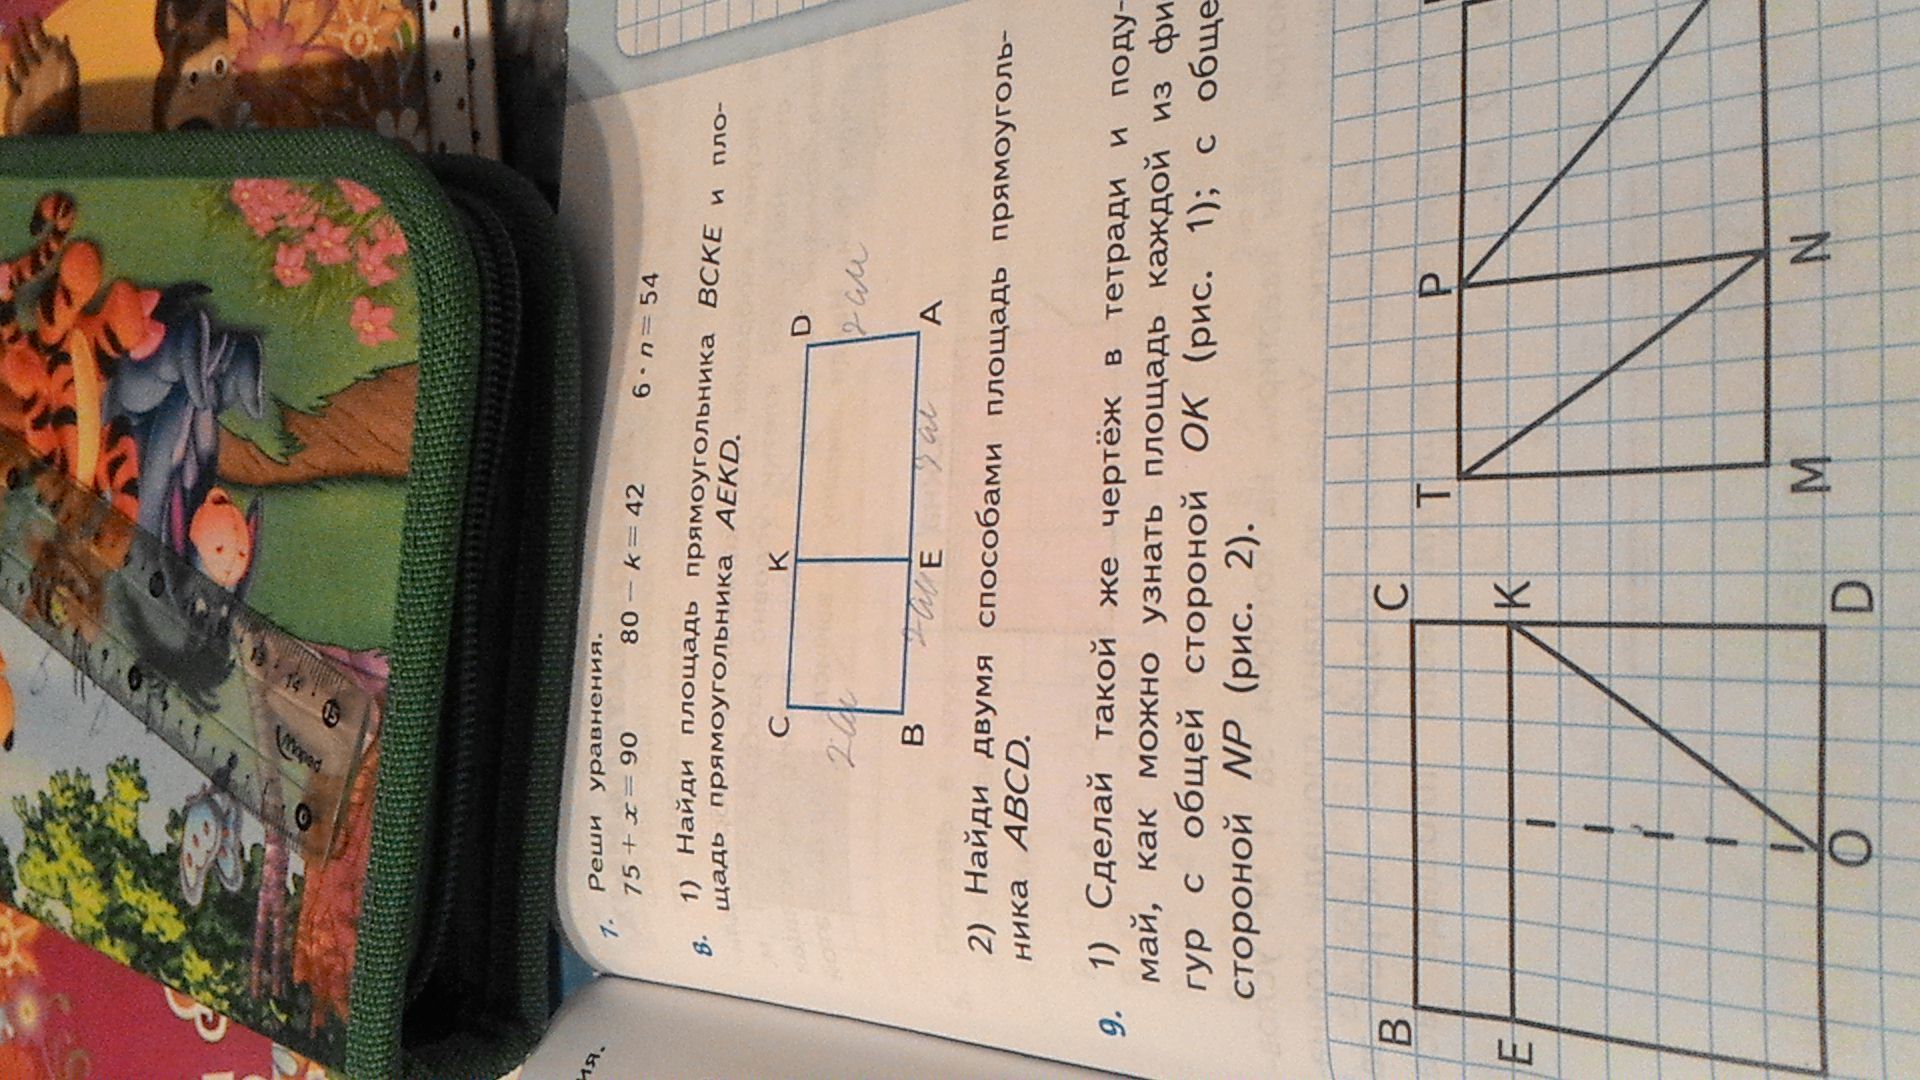 ия.
7. Реши уравнения.
75 + x = 90 80 − k = 42 6 · n = 54
8. 1) Найди площадь прямоугольника BCKE и пло-
щадь прямоугольника AEKD.
C K D
2см 2см
B E A
2см 2см
2) Найди двумя способами площадь прямоуголь-
ника ABCD.
9. 1) Сделай такой же чертёж в тетради и поду-
май, как можно узнать площадь каждой из фи
гур с общей стороной OK (рис. 1); с обще
стороной NP (рис. 2).
B C T P
E K
O D M N
13 14 15
Maped
0